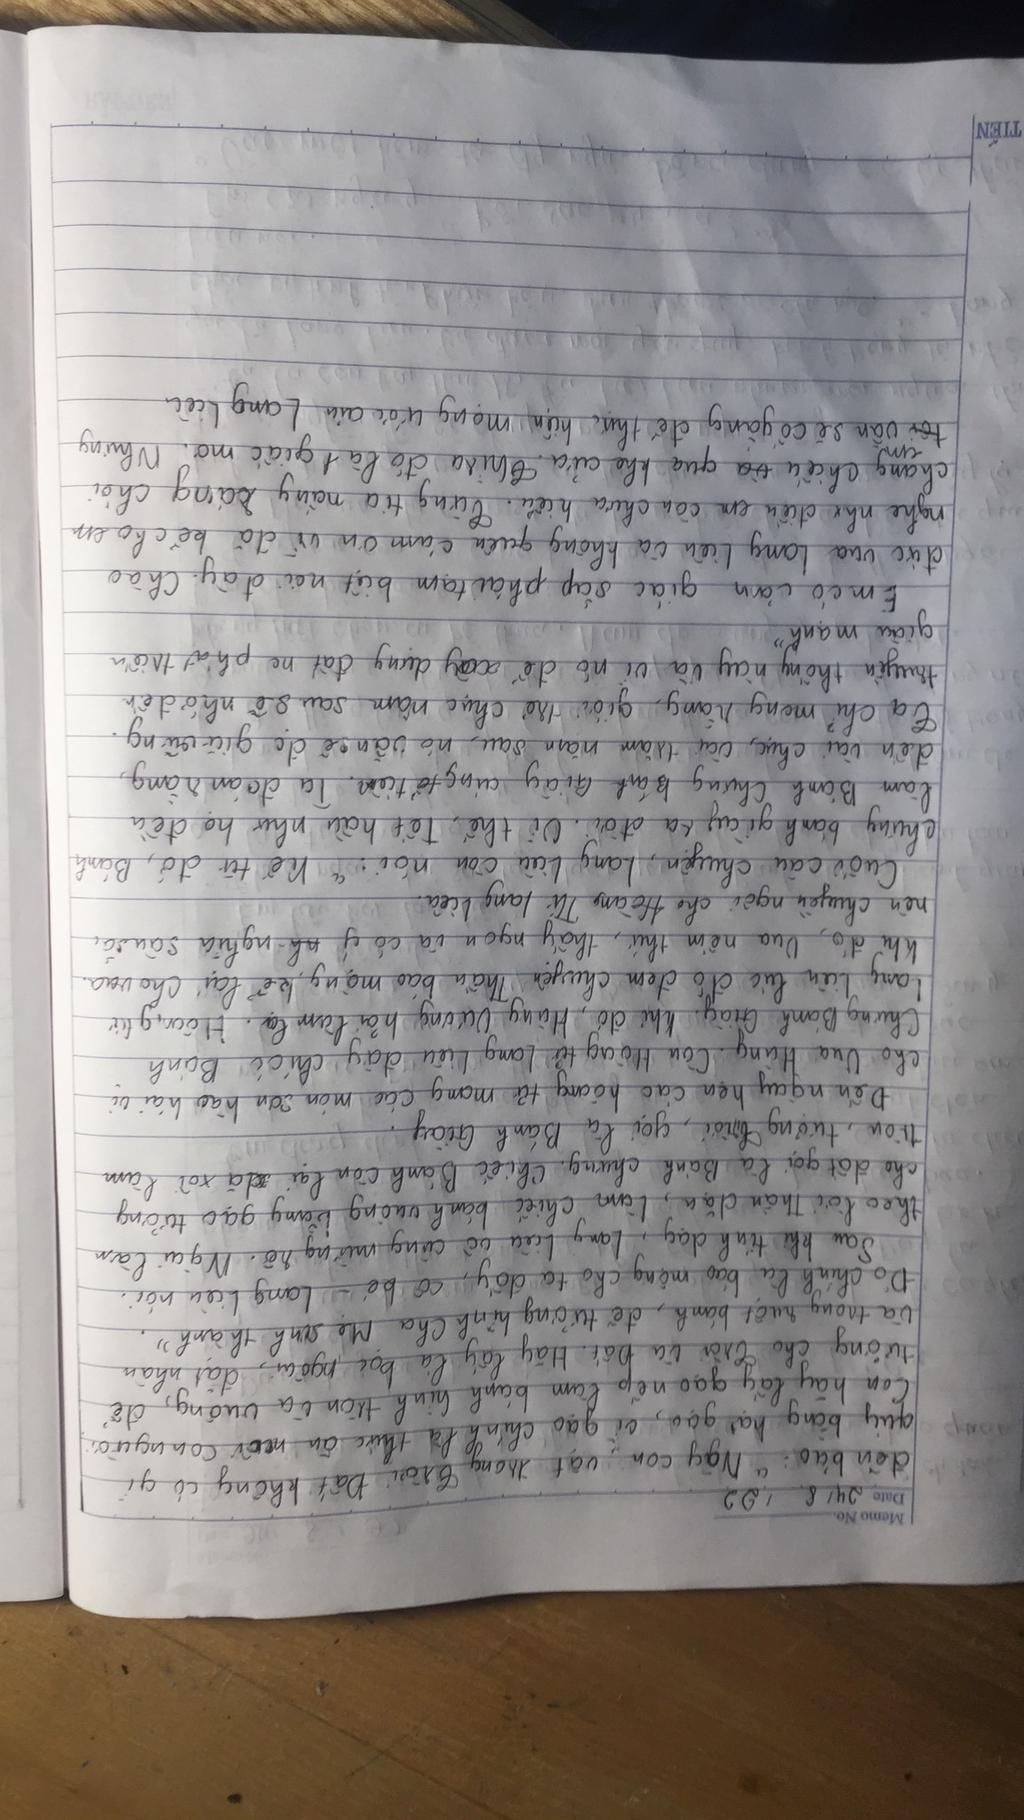 Memo No.
Date 24 / 8 / 22
đến báo: "Này con, vật trong Trời Đất không có gì
quý bằng hạt gạo, vì gạo chính là thức ăn nuôi con người.
Con hãy lấy gạo nếp làm bánh hình tròn và vuông, để
tượng cho Trời và Đất. Hãy lấy lá bọc ngoài, đặt nhân
và trong ruột bánh, để tưởng hình Cha Mẹ sinh thành".
Do chính là báo mộng cho ta đấy, cô bé - Lang Liêu nói.
Sau khi tỉnh dạy, Lang Liêu vô cùng mừng rỡ. Ngài làm
theo lời Thần dặn, làm chiếc bánh vuông bằng gạo tưởng
cho đất gọi là Bánh chưng. Chiếc Bánh còn lại dã xôi làm
tròn, tượng Trời, gọi là Bánh Giầy.
Đến ngày hẹn các hoàng tử mang các món sơn hào hải vị
cho Vua Hùng. Còn Hoàng tử Lang Liêu đấy chỉ có Bánh
Chưng Bánh Giầy. khi đó, Hùng Vương hỏi làm lạ. Hoàng tử
Lang Liêu lúc đó đem chuyện Thần báo mộng, kể lại cho vua.
khi đó, Vua nếm thử, thấy ngon và có ý nghĩa sâu sa,
nên chuyền ngôi cho Hoàng Tử lang Liêu.
Cuối câu chuyện, Lang Liêu còn nói: "Kể từ đó, Bánh
chưng bánh giầy ra đời. Vì thế, Tết hầu như họ đều
làm Bánh Chưng Bánh Giầy cúng tổ tiên. Ta đoán rằng,
đến vài chục, vài trăm năm sau, nó vẫn sẽ dc giữ vững.
Ta chỉ mong rằng, giới trẻ chục năm sau sẽ nhớ đến
truyền thống này và vì nó để xây dựng đất nc phát triển
giàu mạnh".
Em có cảm giác sắp phải tạm biệt nơi đây. Chào
đức vua Lang Liêu và không quên cảm ơn vì đã kể cho em
nghe như điều em còn chưa hiểu. Từng tia nắng sáng chói
chang chiếu qua khe cửa. Thì ra đó là 1 giấc mơ. Nhưng
em vẫn sẽ cố gắng để thực hiện mong ước của Lang Liêu
TIẾN